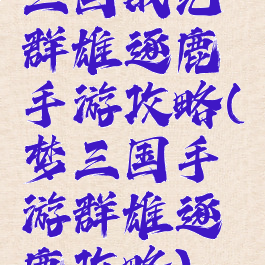 三国战纪
群雄逐鹿
手游攻略(
梦三国手
游群雄逐
鹿攻略)